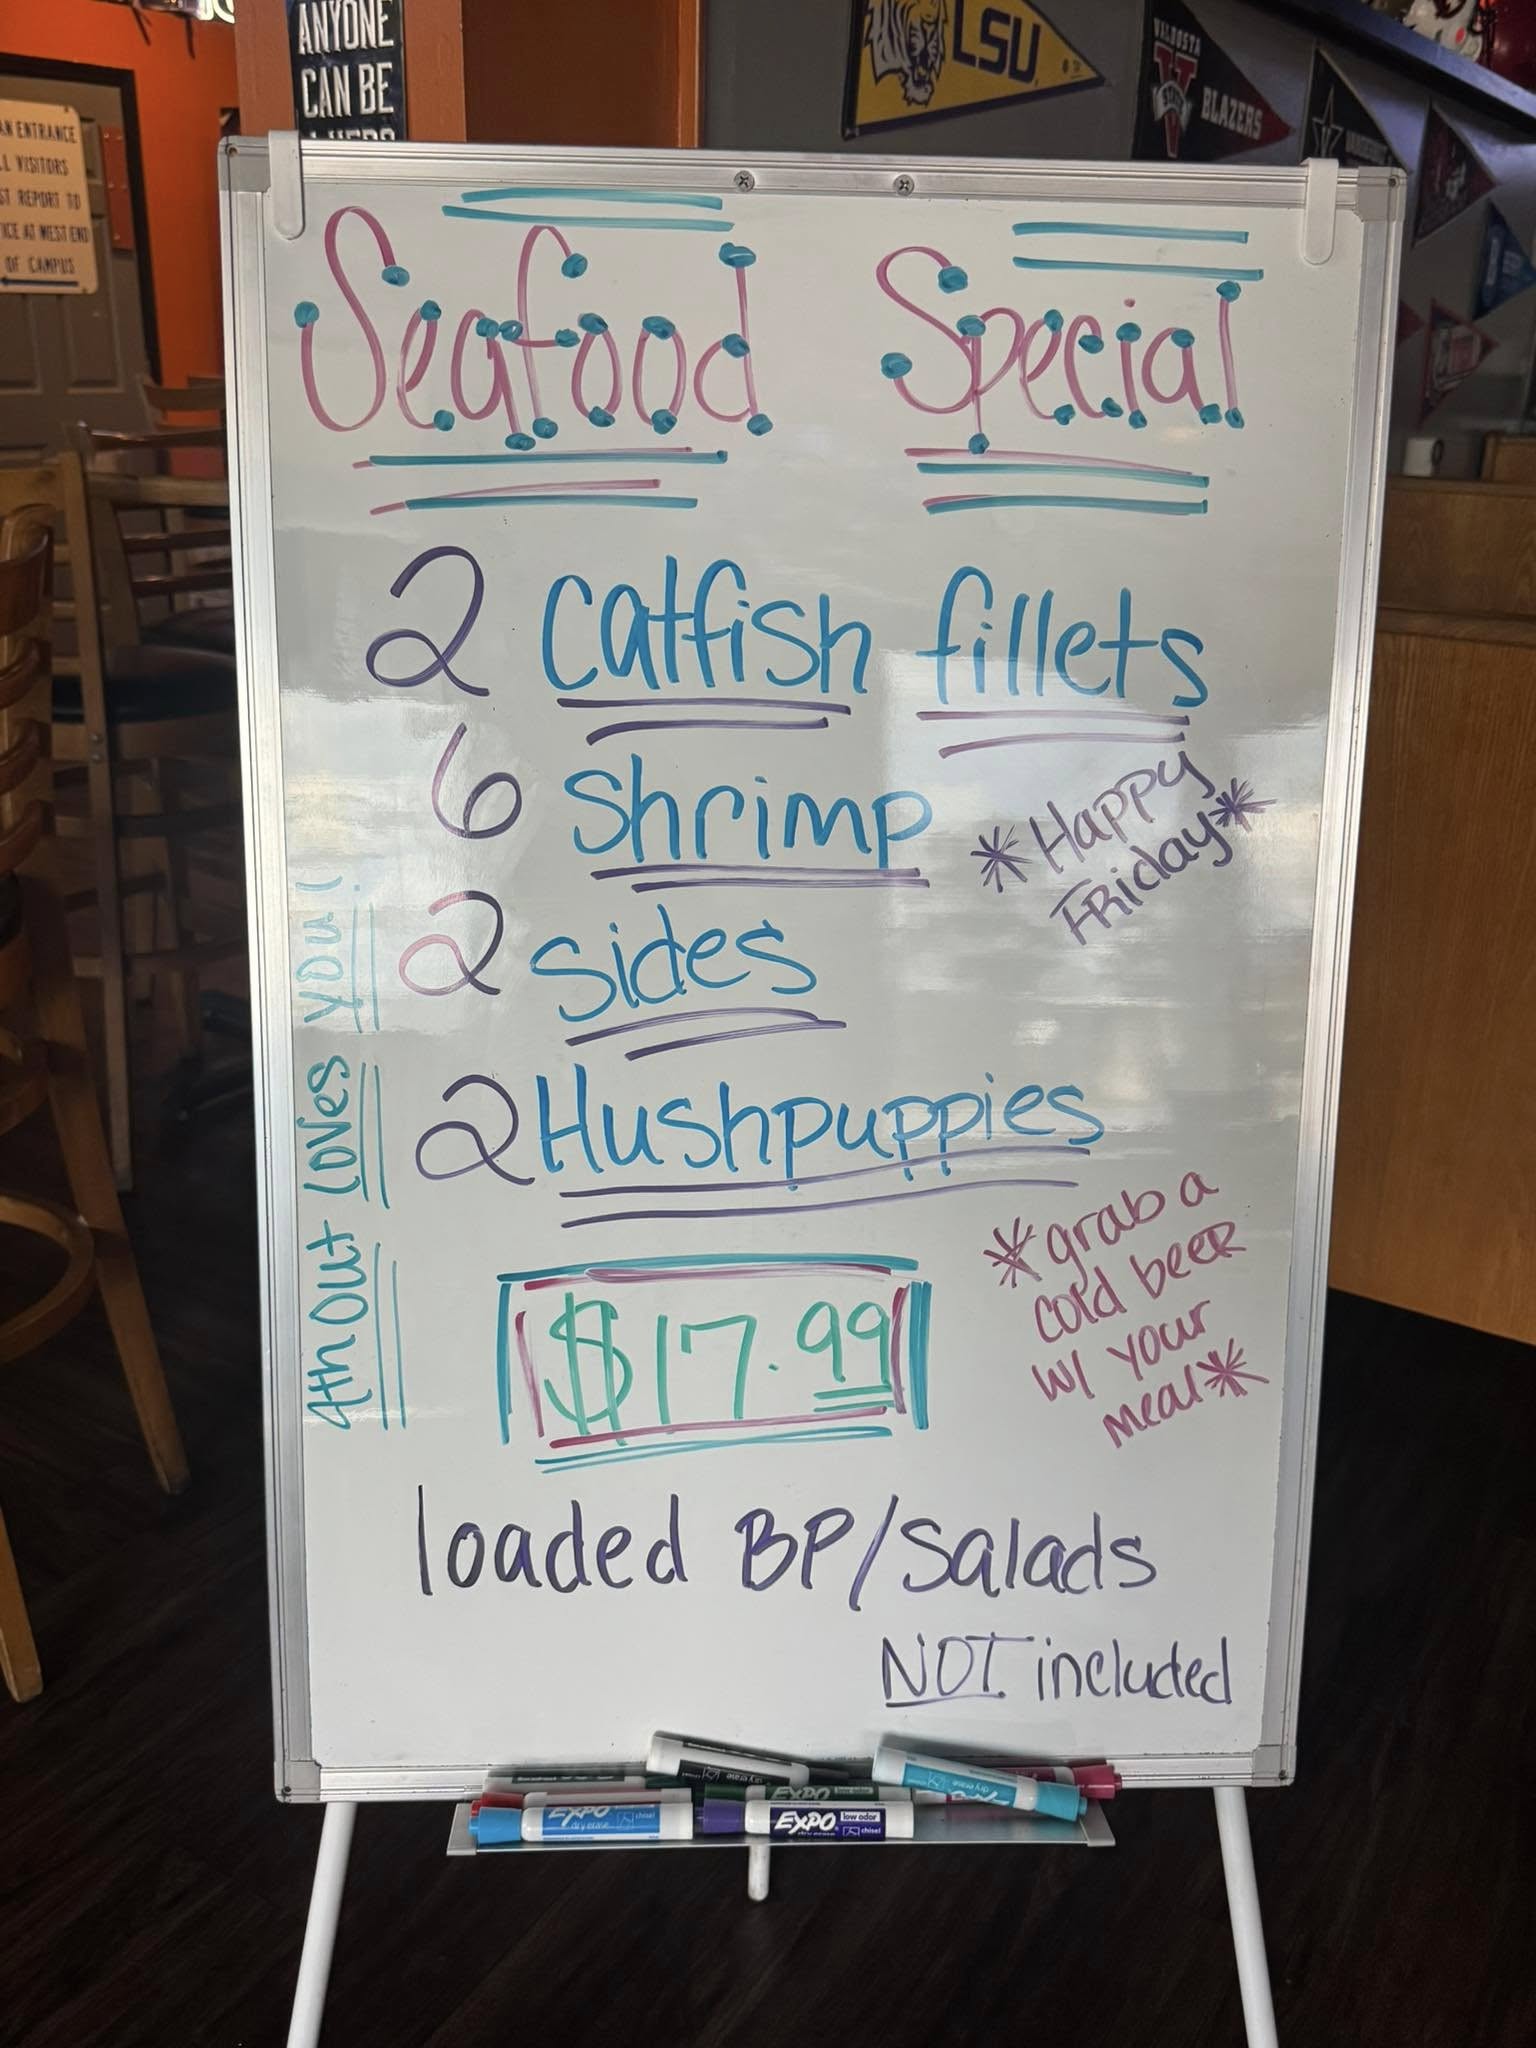 ANYONE
CAN BE
AN ENTRANCE
VISITORS
REPORT TO
AT WEST END
OF CAMPUS
LSU
VALDOSTA
STATE
BLAZERS
Seafood Special
2 Catfish fillets
6 Shrimp
*Happy
FRiday*
2 Sides
2 Hushpuppies
4th Out Loves you!
$17.99
*grab a
cold beer
w/ your
meal*
loaded BP/Salads
NOT included
EXPO
dry erase
chisel
EXPO
low odor
dry erase
chisel
EXPO
dry erase